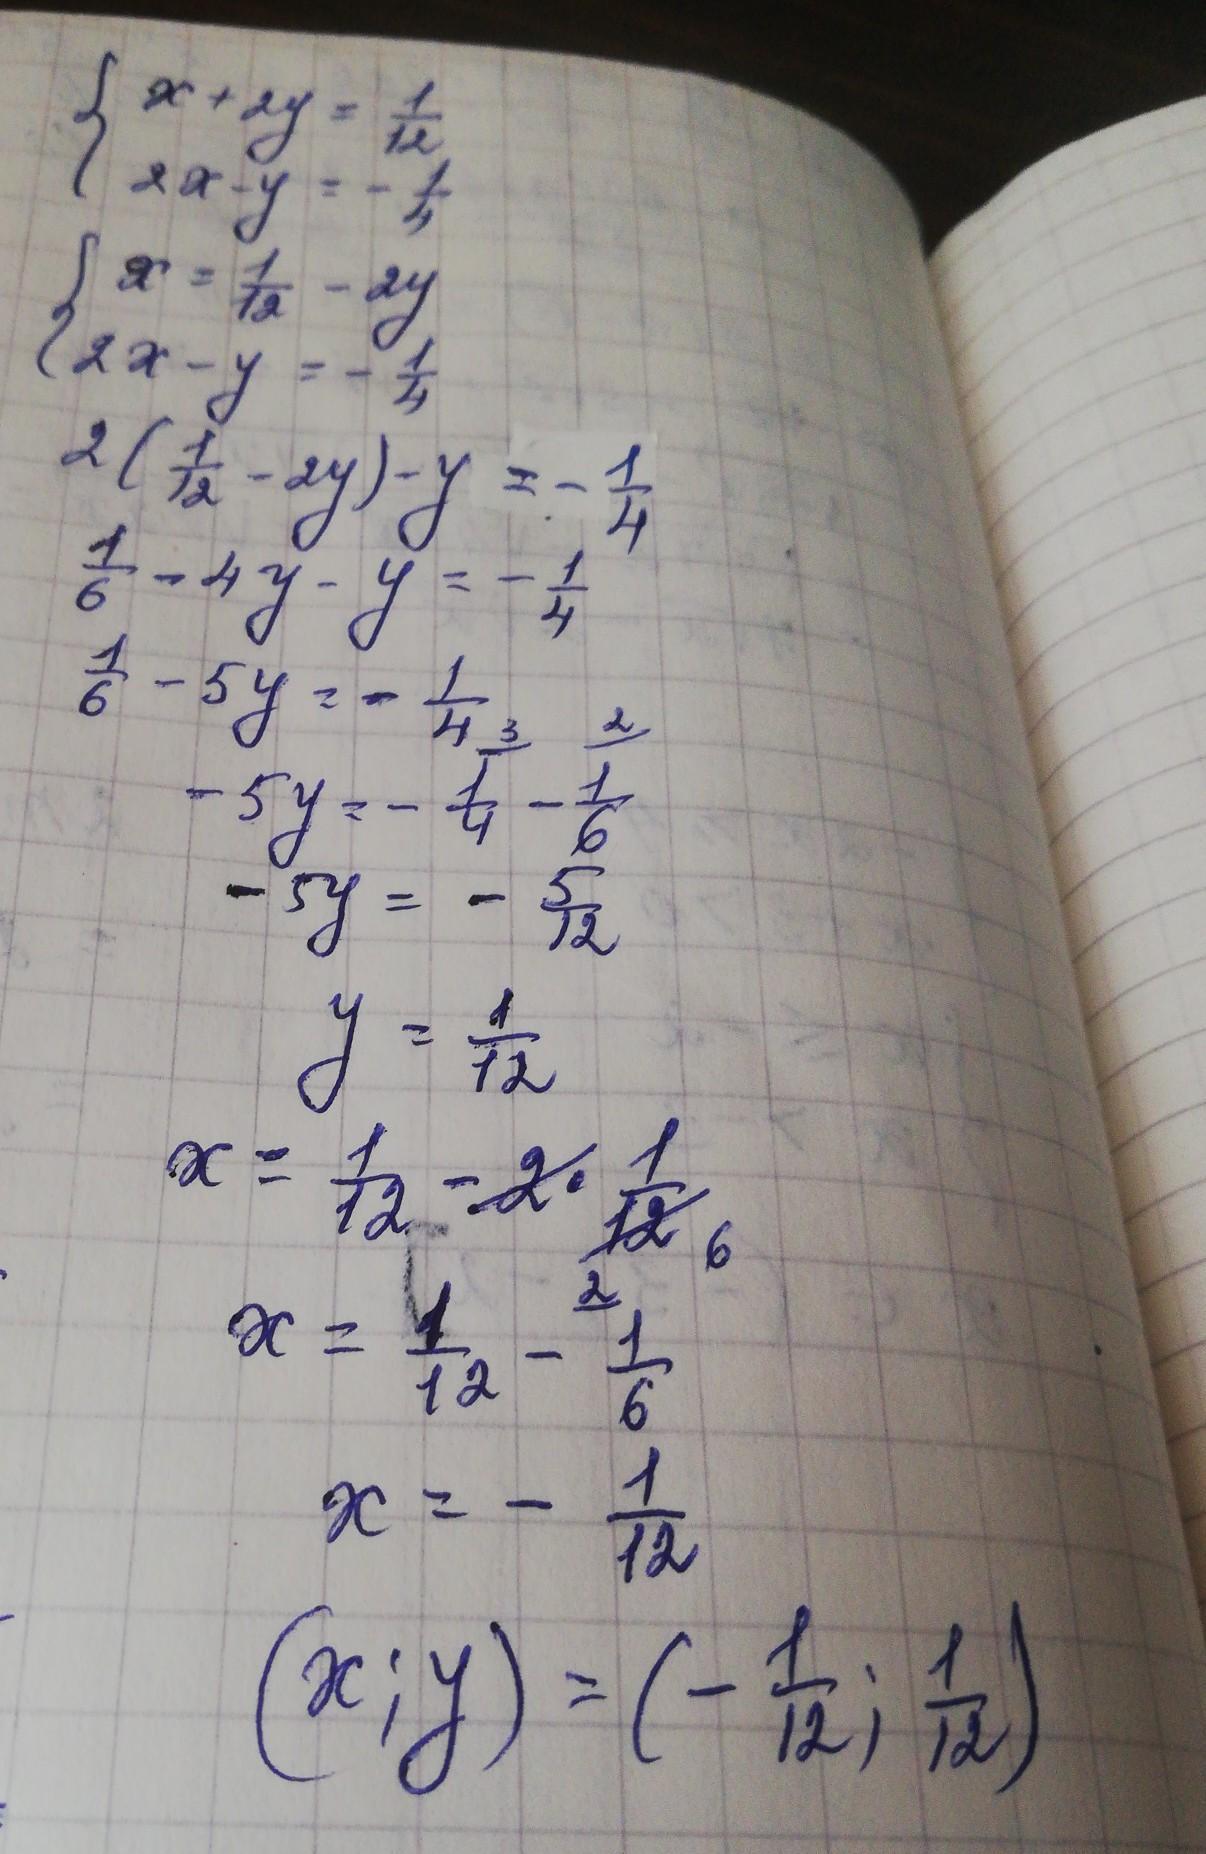 { x + 2y = 1/12
2x - y = - 1/4
{ x = 1/12 - 2y
2x - y = - 1/4
2 ( 1/12 - 2y ) - y = - 1/4
1/6 - 4y - y = - 1/4
1/6 - 5y = - 1/4
3 2
- 5y = - 1/4 - 1/6
- 5y = - 5/12
y = 1/12
x = 1/12 - 2 · 1/12 6
2
x = 1/12 - 1/6
x = - 1/12
(x; y) = (- 1/12; 1/12)